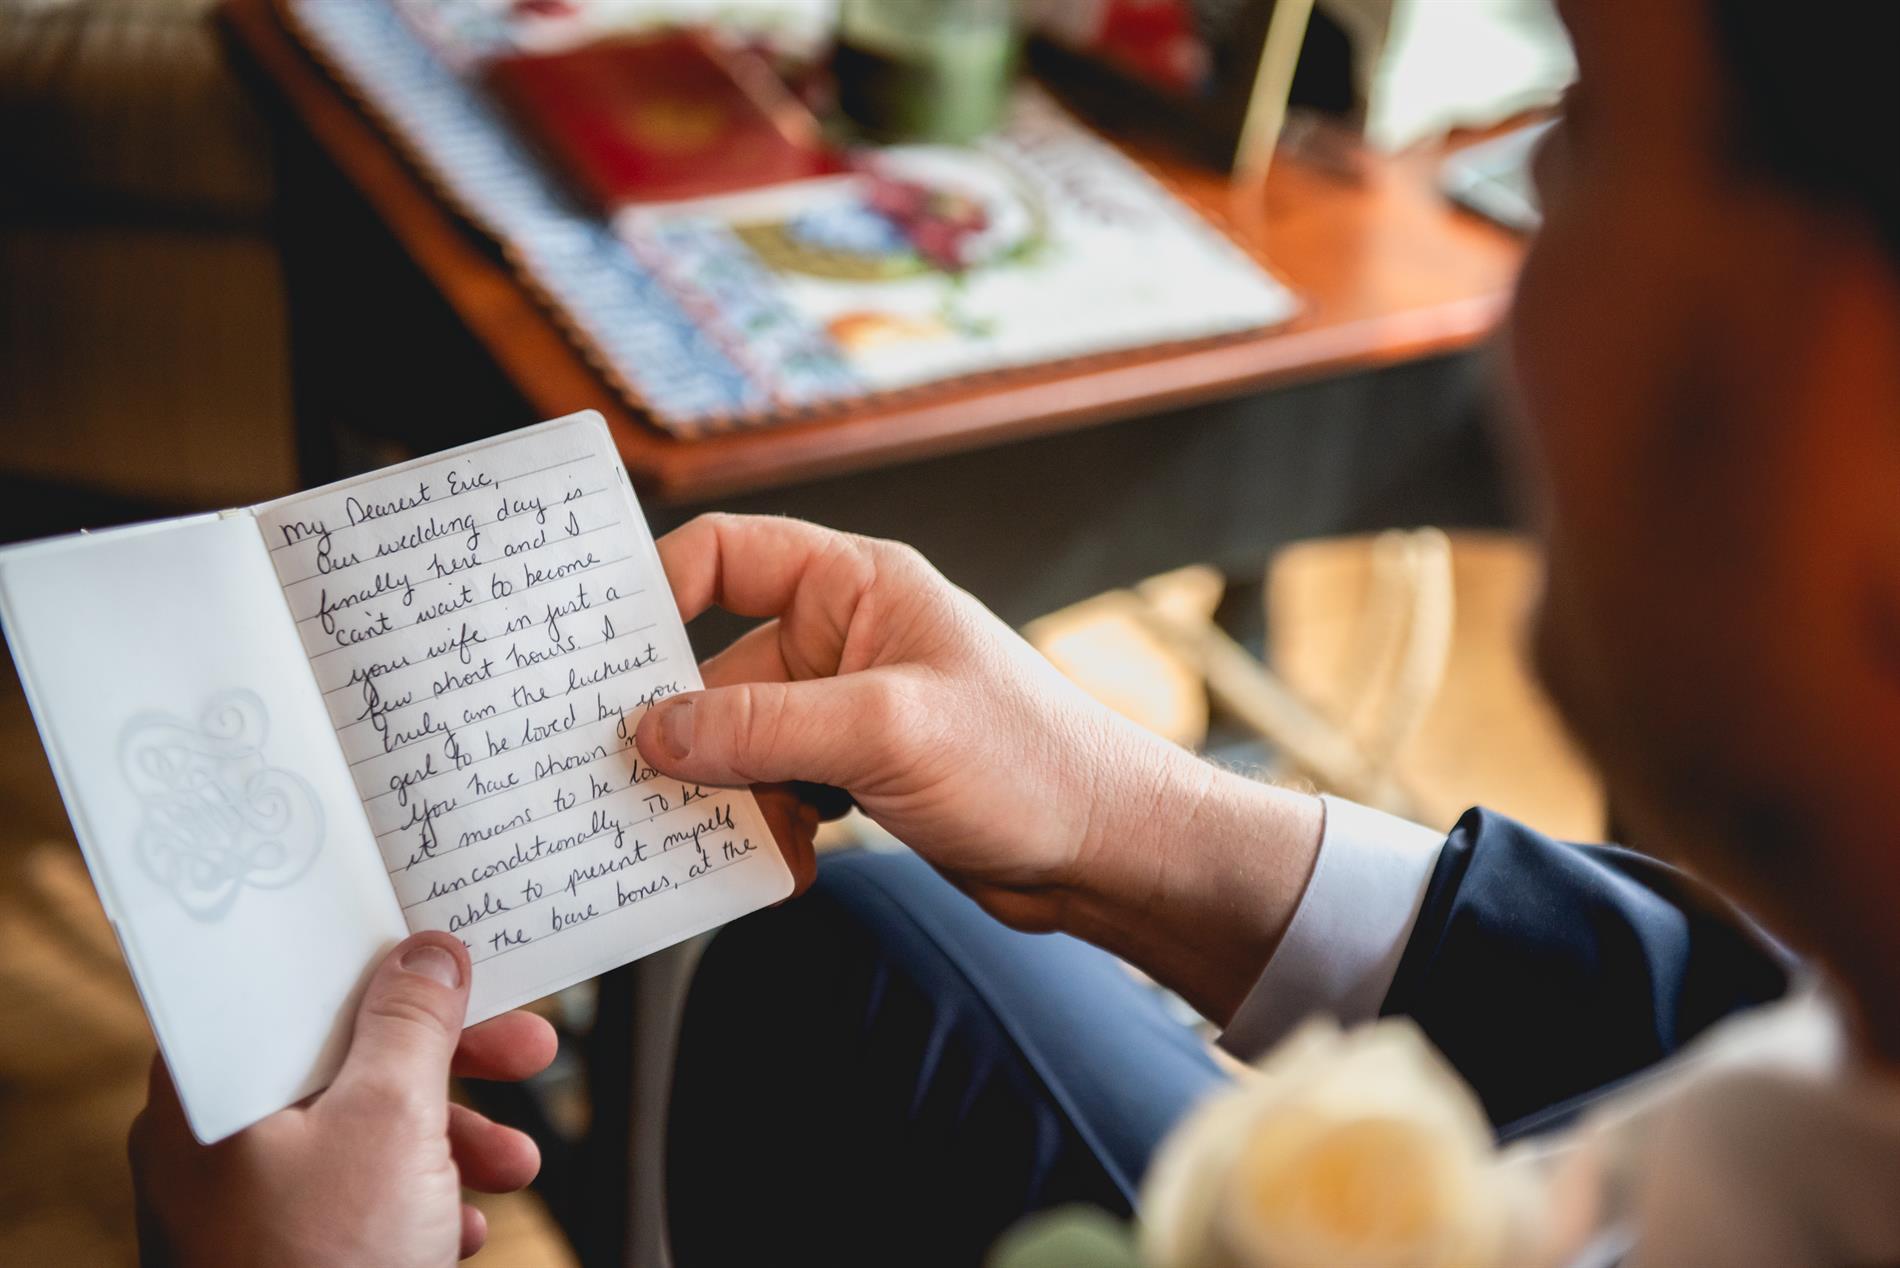 My Dearest Eric,
Our wedding day is
finally here and I
can't wait to become
your wife in just a
few short hours. I
truly am the luckiest
girl to be loved by you.
You have shown
it means to be
unconditionally. To be
able to present myself
the bare bones, at the